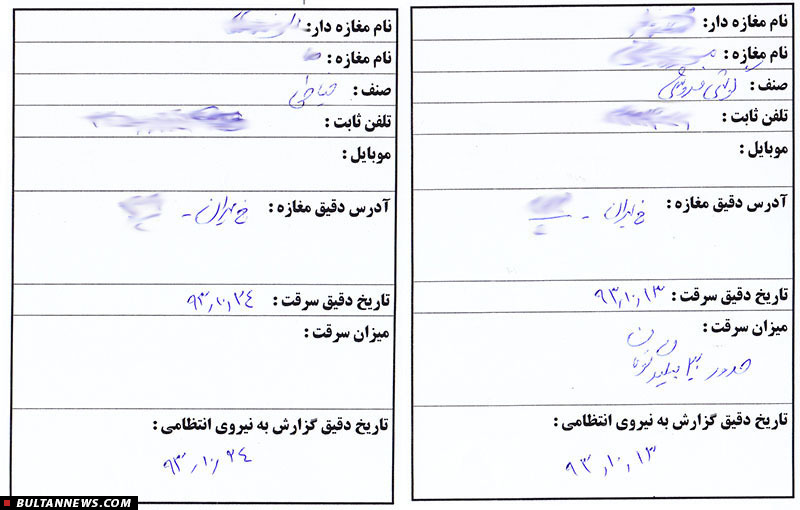 نام مغازه دار:
نام مغازه :
صنف : گوشی فروشی
تلفن ثابت :
موبایل :
آدرس دقیق مغازه : خ تهران -
تاریخ دقیق سرقت : ۹۳,۱۰,۱۳
میزان سرقت :
حدود ۳۰ میلیون تومان
تاریخ دقیق گزارش به نیروی انتظامی :
۹۳,۱۰,۱۳
نام مغازه دار:
نام مغازه :
صنف : خیاطی
تلفن ثابت :
موبایل :
آدرس دقیق مغازه : خ تهران -
تاریخ دقیق سرقت : ۹۳,۱۰,۲۴
میزان سرقت :
تاریخ دقیق گزارش به نیروی انتظامی :
۹۳,۱۰,۲۴
BULTANNEWS.COM